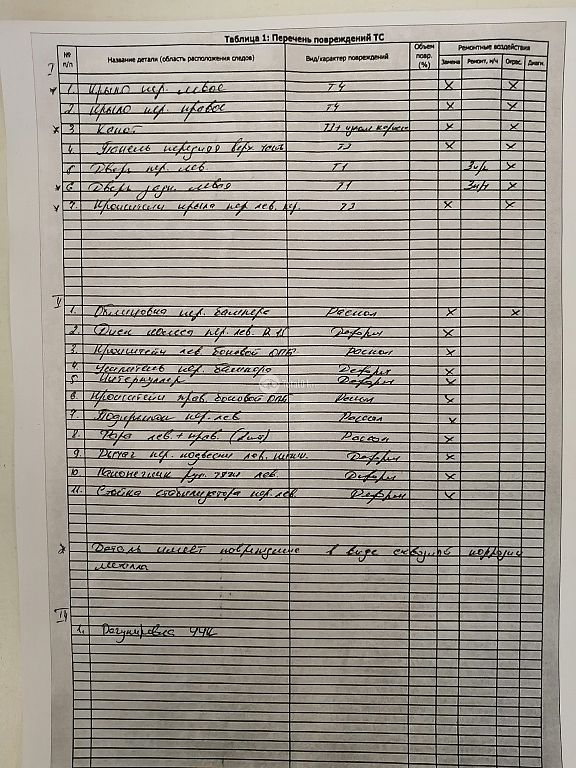 Таблица 1: Перечень повреждений ТС
№ п/п Название детали (область расположения следов) Вид/характер повреждений Объем повр. (%) Ремонтные воздействия
Замена Ремонт, н/ч Окрас. Диагн.
I
* 1. Крыло пер. левое Т4 X X
2 Крыло пер. правое Т4 X X
* 3 Капот X X
4. Панель передняя верх. X X
5 Дверь пер. лев. Т1 3н/ч X
* 6 Дверь задн. левая Т1 3н/ч X
* 7. Кронштейн крыла пер. лев. Т3 X X
II
1. Облицовка пер. бампера Раскол X X
2. Диск колеса пер. лев. Деформ X
3. Кронштейн лев. боковой Раскол X
4. Усилитель пер. бампера Деформ X
5 Интеркуллер Деформ X
6. Кронштейн прав. боковой Раскол X
7. Подкрылок пер. лев Раскол X
8. Фара лев. + прав. Раскол X
9. Рычаг пер. подвески лев. нижн. Деформ X
10. Наконечник рул. тяги лев. Деформ X
11. Стойка стабилизатора пер. лев Деформ X
* Деталь имеет повреждение в виде сквозной коррозии
металла
1. Регулировка УУК